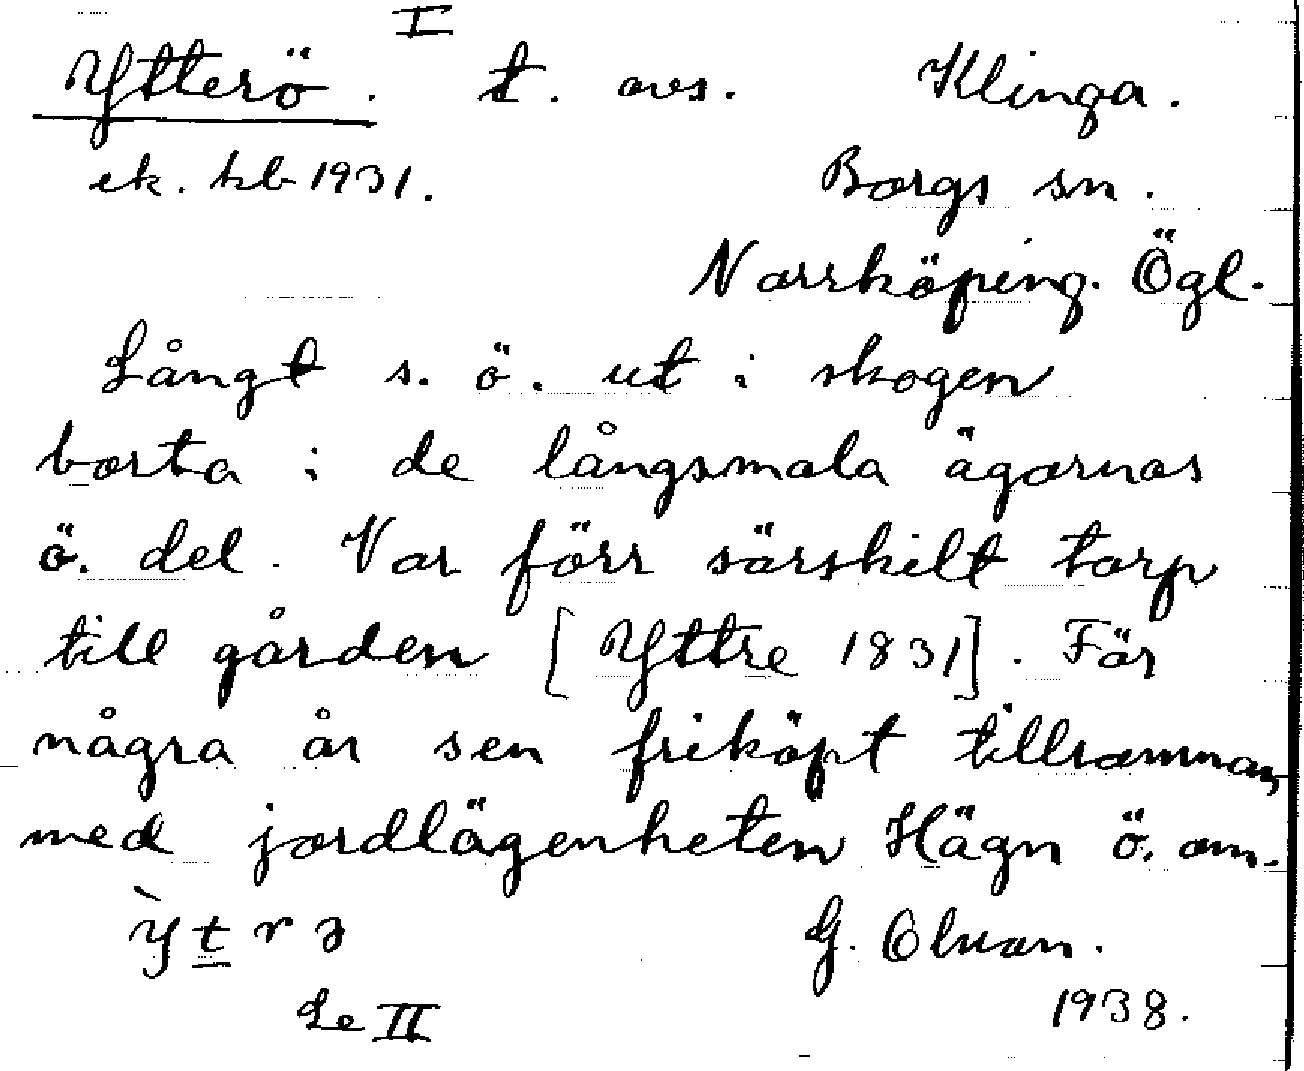 I
Ytterö. t. avs. Klinga.
ek. kb 1931. Borgs sn.
Norrköping. Ögl.
Långt s. ö. ut i skogen
borta i de långsmala ägornas
ö. del. Var förr särskilt torp
till gården [Yttre 1831]. För
några år sen friköpt tillsammans
med jordlägenheten Hägn ö. om.
ỳt̲rɜ G. Olsson.
Se II 1938.